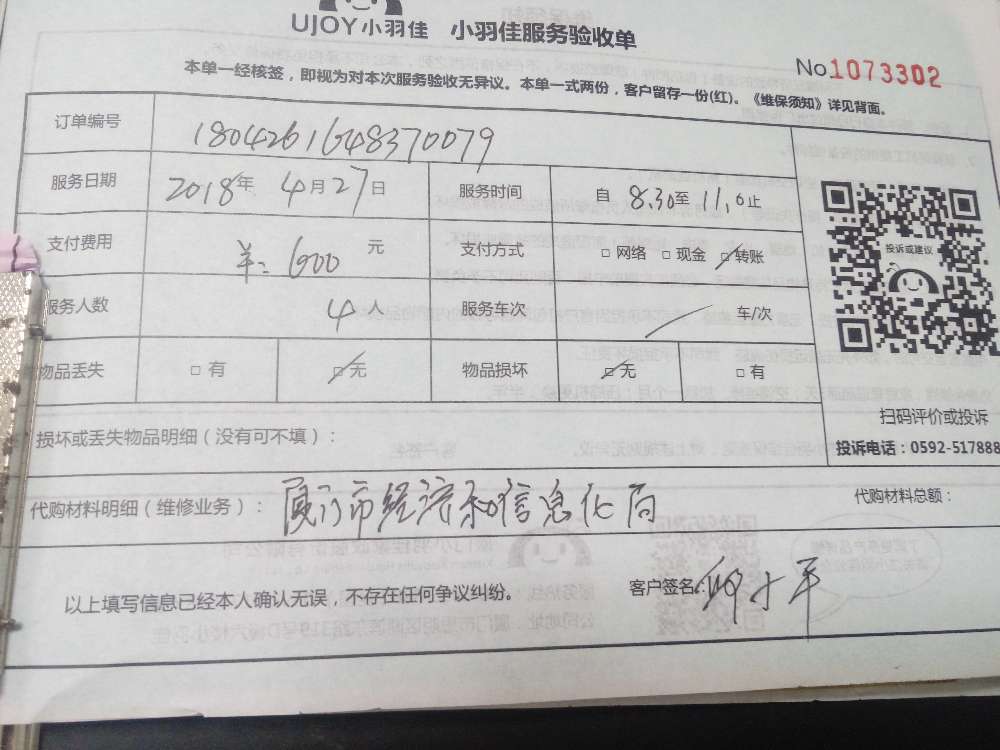 UJOY小羽佳 小羽佳服务验收单
No1073302
本单一经核签，即视为对本次服务验收无异议。本单一式两份，客户留存一份(红)。《维保须知》详见背面。
订单编号 1804261648370079
服务日期 2018年 4月27日 服务时间 自 8.30至 11.0止
支付费用 羊：600 元 支付方式 □ 网络 □ 现金 □转账
服务人数 4人 服务车次 / 车/次
物品丢失 □ 有 □无 物品损坏 □无 □ 有
投诉或建议
扫码评价或投诉
投诉电话：0592-517888
损坏或丢失物品明细（没有可不填）：
代购材料明细（维修业务）：厦门市经济和信息化局 代购材料总额：
以上填写信息已经本人确认无误，不存在任何争议纠纷。 客户签名：